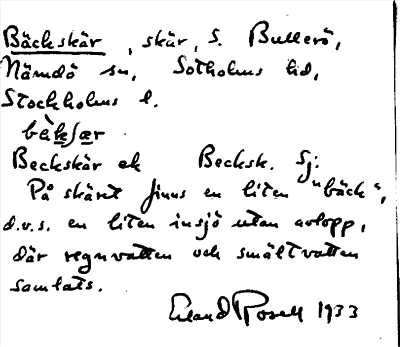 Bäckskär, skär, S. Bullerö,
Nämdö sn, Sotholms hd,
Stockholms l.
bàkʃær
Beckskär ek Becksk. Sj:
På skäret finns en liten "bäck",
d.v.s. en liten insjö utan avlopp,
där regnvatten och smältvatten
samlats.
Erland Rosell 1933